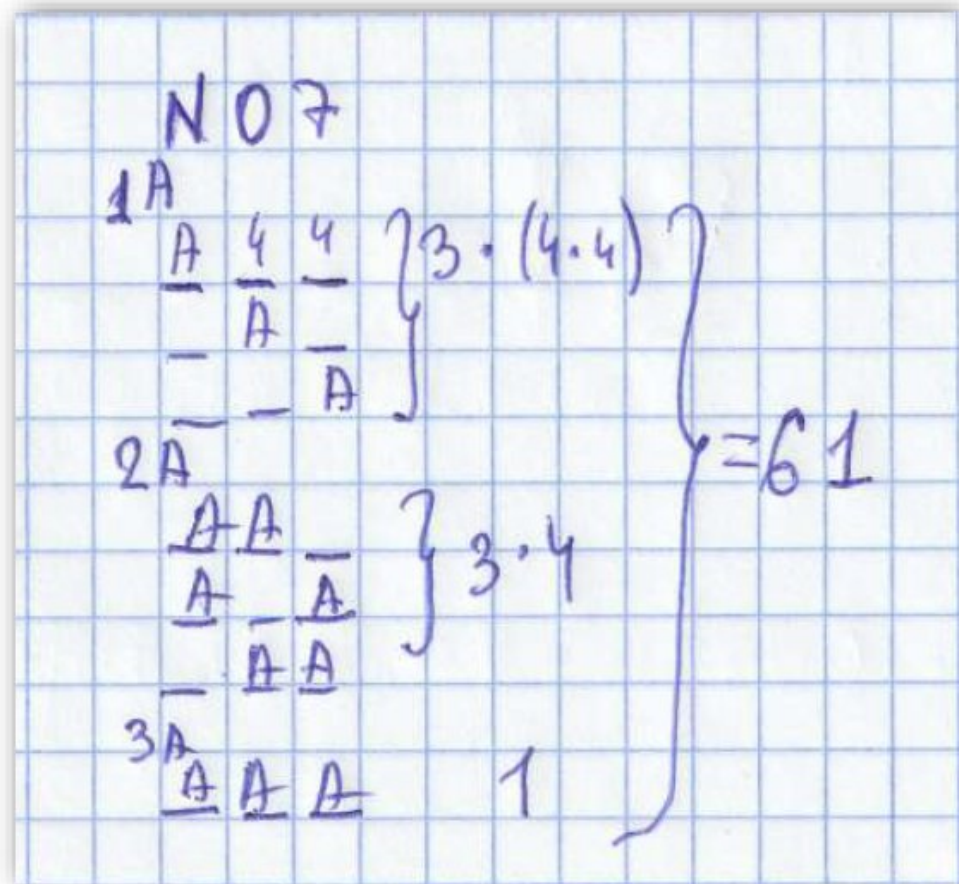 N07
1A
A 4 4 } 3·(4·4)
_ A _
_ _ A
2A
A A _
A _ A } 3·4
_ A A
3A
A A A 1
} =61